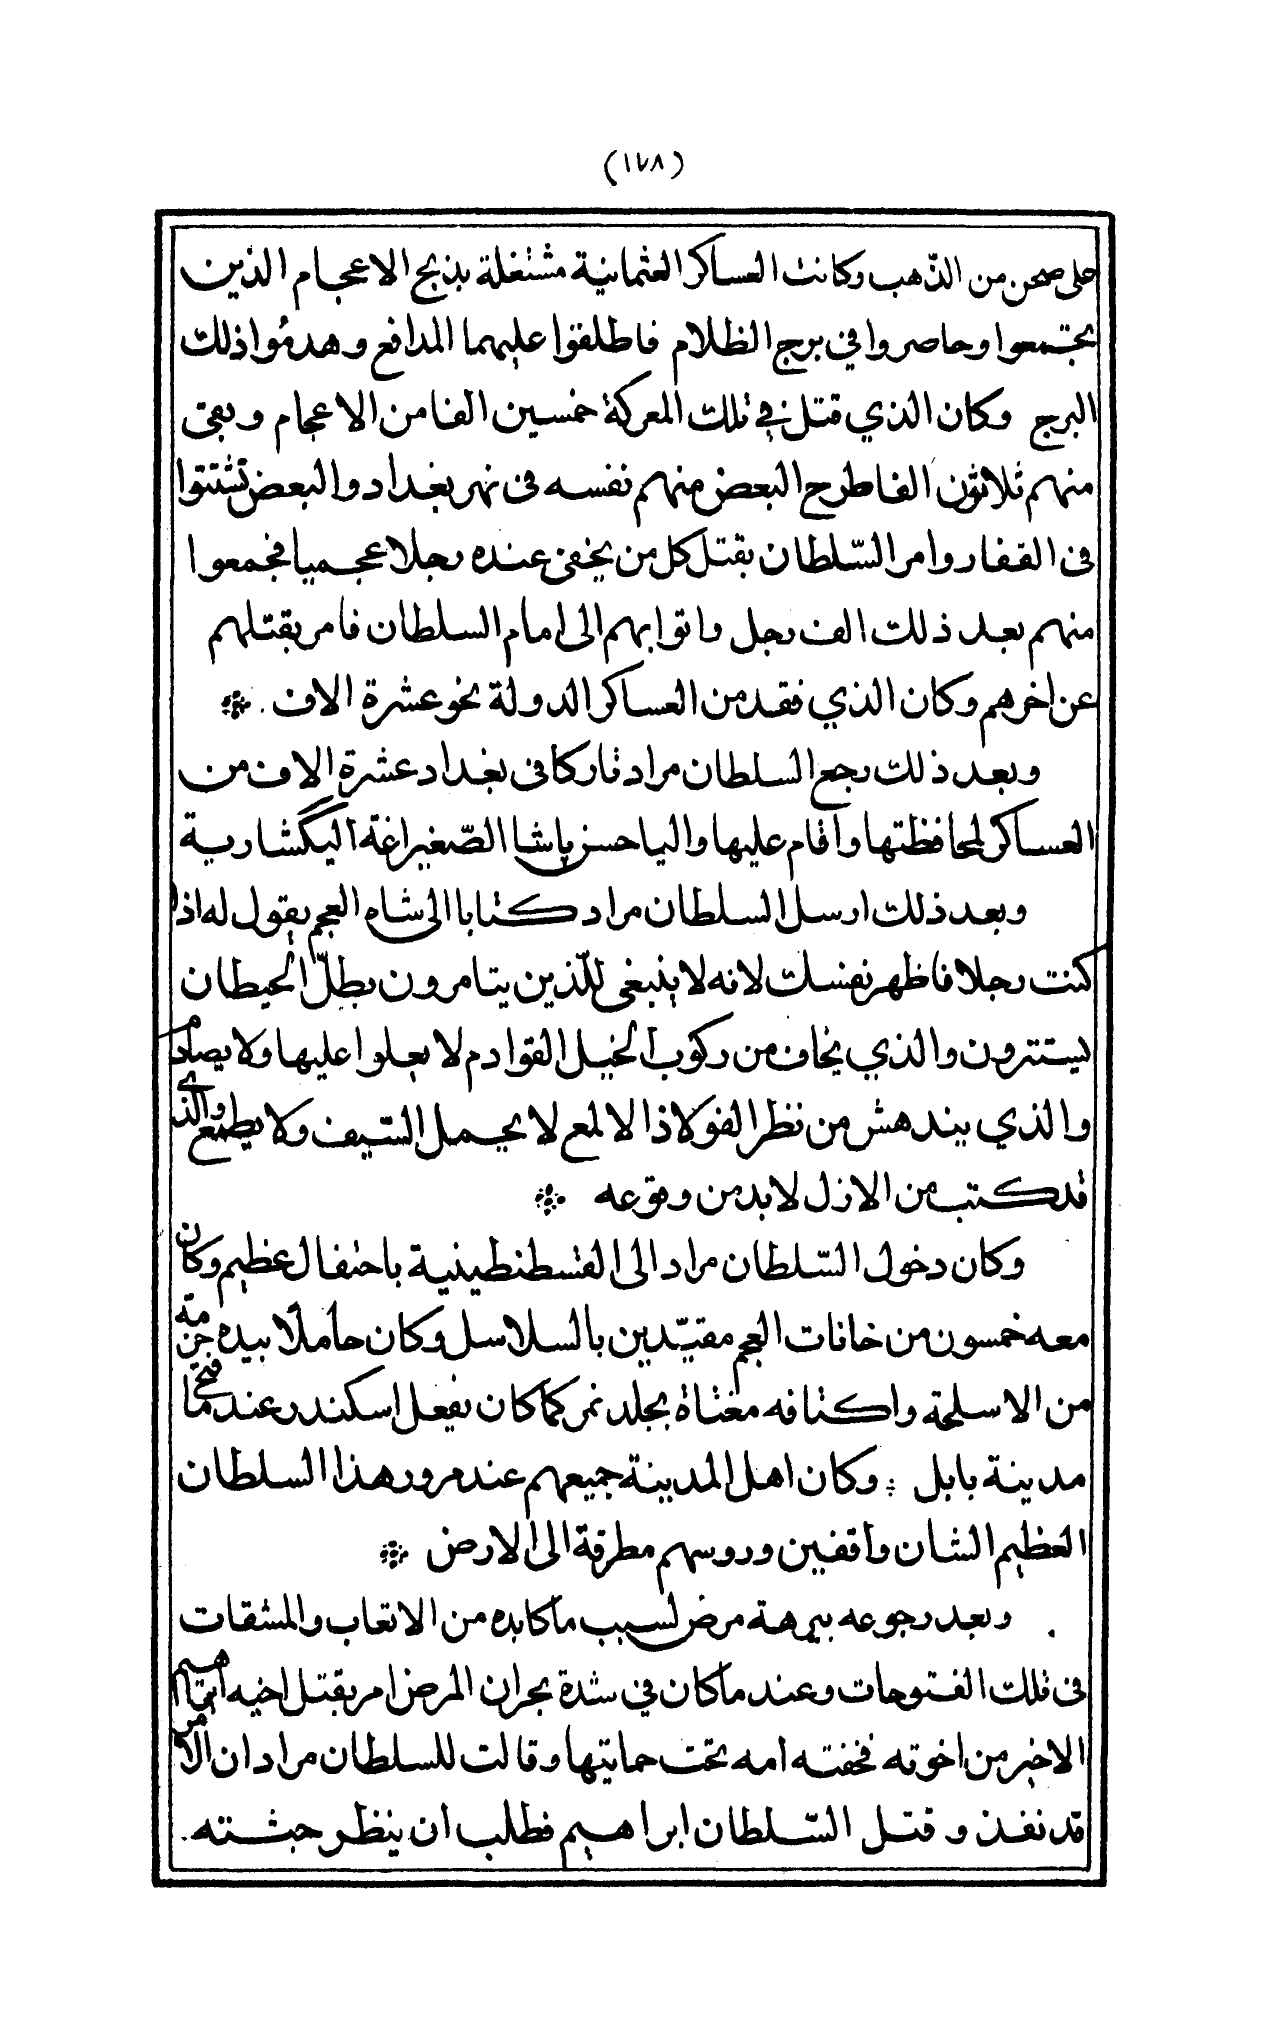 (١٧٨)
على صحن من الذّهب وكانت العساكر العثمانية مشتغلة بذبح الاعجام الذين
تجتمعوا وحاصروا في برج الظلام فاطلقوا عليهما المدافع وهدمُوا ذلك
البرج وكان الذي قتل في تلك المعركة خمسين الفا من الاعجام وبقى
منهم ثلاثون الفا طرح البعض منهم نفسه فى نهر بغداد والبعض تشتتوا
فى القفار وامر السّلطان بقتل كل من يخفى عنده رجلا عجميا فجمعوا
منهم بعد ذلك الف رجل واتوا بهم الى امام السلطان فامر بقتلهم
عن اخرهم وكان الذي فقد من العساكر الدولة نحو عشرة الاف
وبعد ذلك رجع السلطان مراد تاركا فى بغداد عشرة الاف من
العساكر لمحافظتها واقام عليها واليا حسن باشا الصّغير اغة اليكشارية
وبعد ذلك ارسل السلطان مراد كتابا الى شاه العجم يقول له اذا
كنت رجلا فاظهر نفسك لانه لا ينبغى للّذين يتامرون بطلّ الحيطان
يستترون والذي يخاف من ركوب الخيل القوادم لا يعلوا عليها ولا يصادم
والذي يندهش من نظر الفولاذ الالمع لا يحمل السّيف ولا يطمع والذي
قد كتب من الازل لا بد من وقوعه
وكان دخول السّلطان مراد الى القسطنطينية باحتفال عظيم وكان
معه خمسون من خانات العجم مقيّدين بالسلاسل وكان حاملًا بيده حزمة
من الاسلحة واكتافه مغتاة بجلد نمر كما كان يفعل اسكندر عند ما فتح
مدينة بابل وكان اهل المدينة جميعهم عند مرور هذا السلطان
العظيم الشان واقفين وروسهم مطرقة الى الارض
وبعد رجوعه ببرهة مرض لسبب ما كابده من الاتعاب والمشقات
فى تلك الفتوحات وعند ما كان في شدة بحران المرض امر بقتل اخيه ابراهيم
الاخير من اخوته فخفته امه تحت حمايتها وقالت للسلطان مراد ان الامر
قد نفذ و قتل السّلطان ابراهيم فطلب ان ينظر جثته